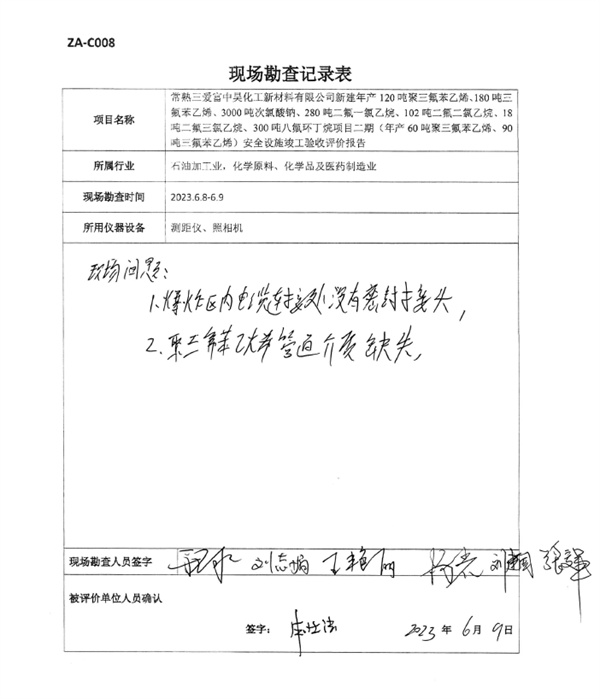 ZA-C008
现场勘查记录表
项目名称
常熟三爱富中昊化工新材料有限公司新建年产 120 吨聚三氟苯乙烯、180 吨三
氟苯乙烯、3000 吨次氯酸钠、280 吨二氟一氯乙烷、102 吨二氟二氯乙烷、18
吨二氟三氯乙烷、300 吨八氟环丁烷项目二期（年产 60 吨聚三氟苯乙烯、90
吨三氟苯乙烯）安全设施竣工验收评价报告
所属行业
石油加工业，化学原料、化学品及医药制造业
现场勘查时间
2023.6.8-6.9
所用仪器设备
测距仪、照相机
现场问题：
1.爆炸区内电缆连接处没有密封接头，
2.聚三氟苯乙烯管道介质缺失，
现场勘查人员签字
刘志娟 王艳丽 杨杰 刘建国
被评价单位人员确认
签字：
2023 年 6 月 9 日